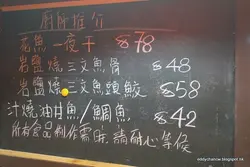 廚師推介
花魚一夜干 $78
岩鹽燒三文魚骨 $48
岩鹽燒三文魚頭鮫 $58
汁燒油甘魚/鯛魚 $42
所有食品制作需時,請耐心等候
eddychanow.blogspot.hk